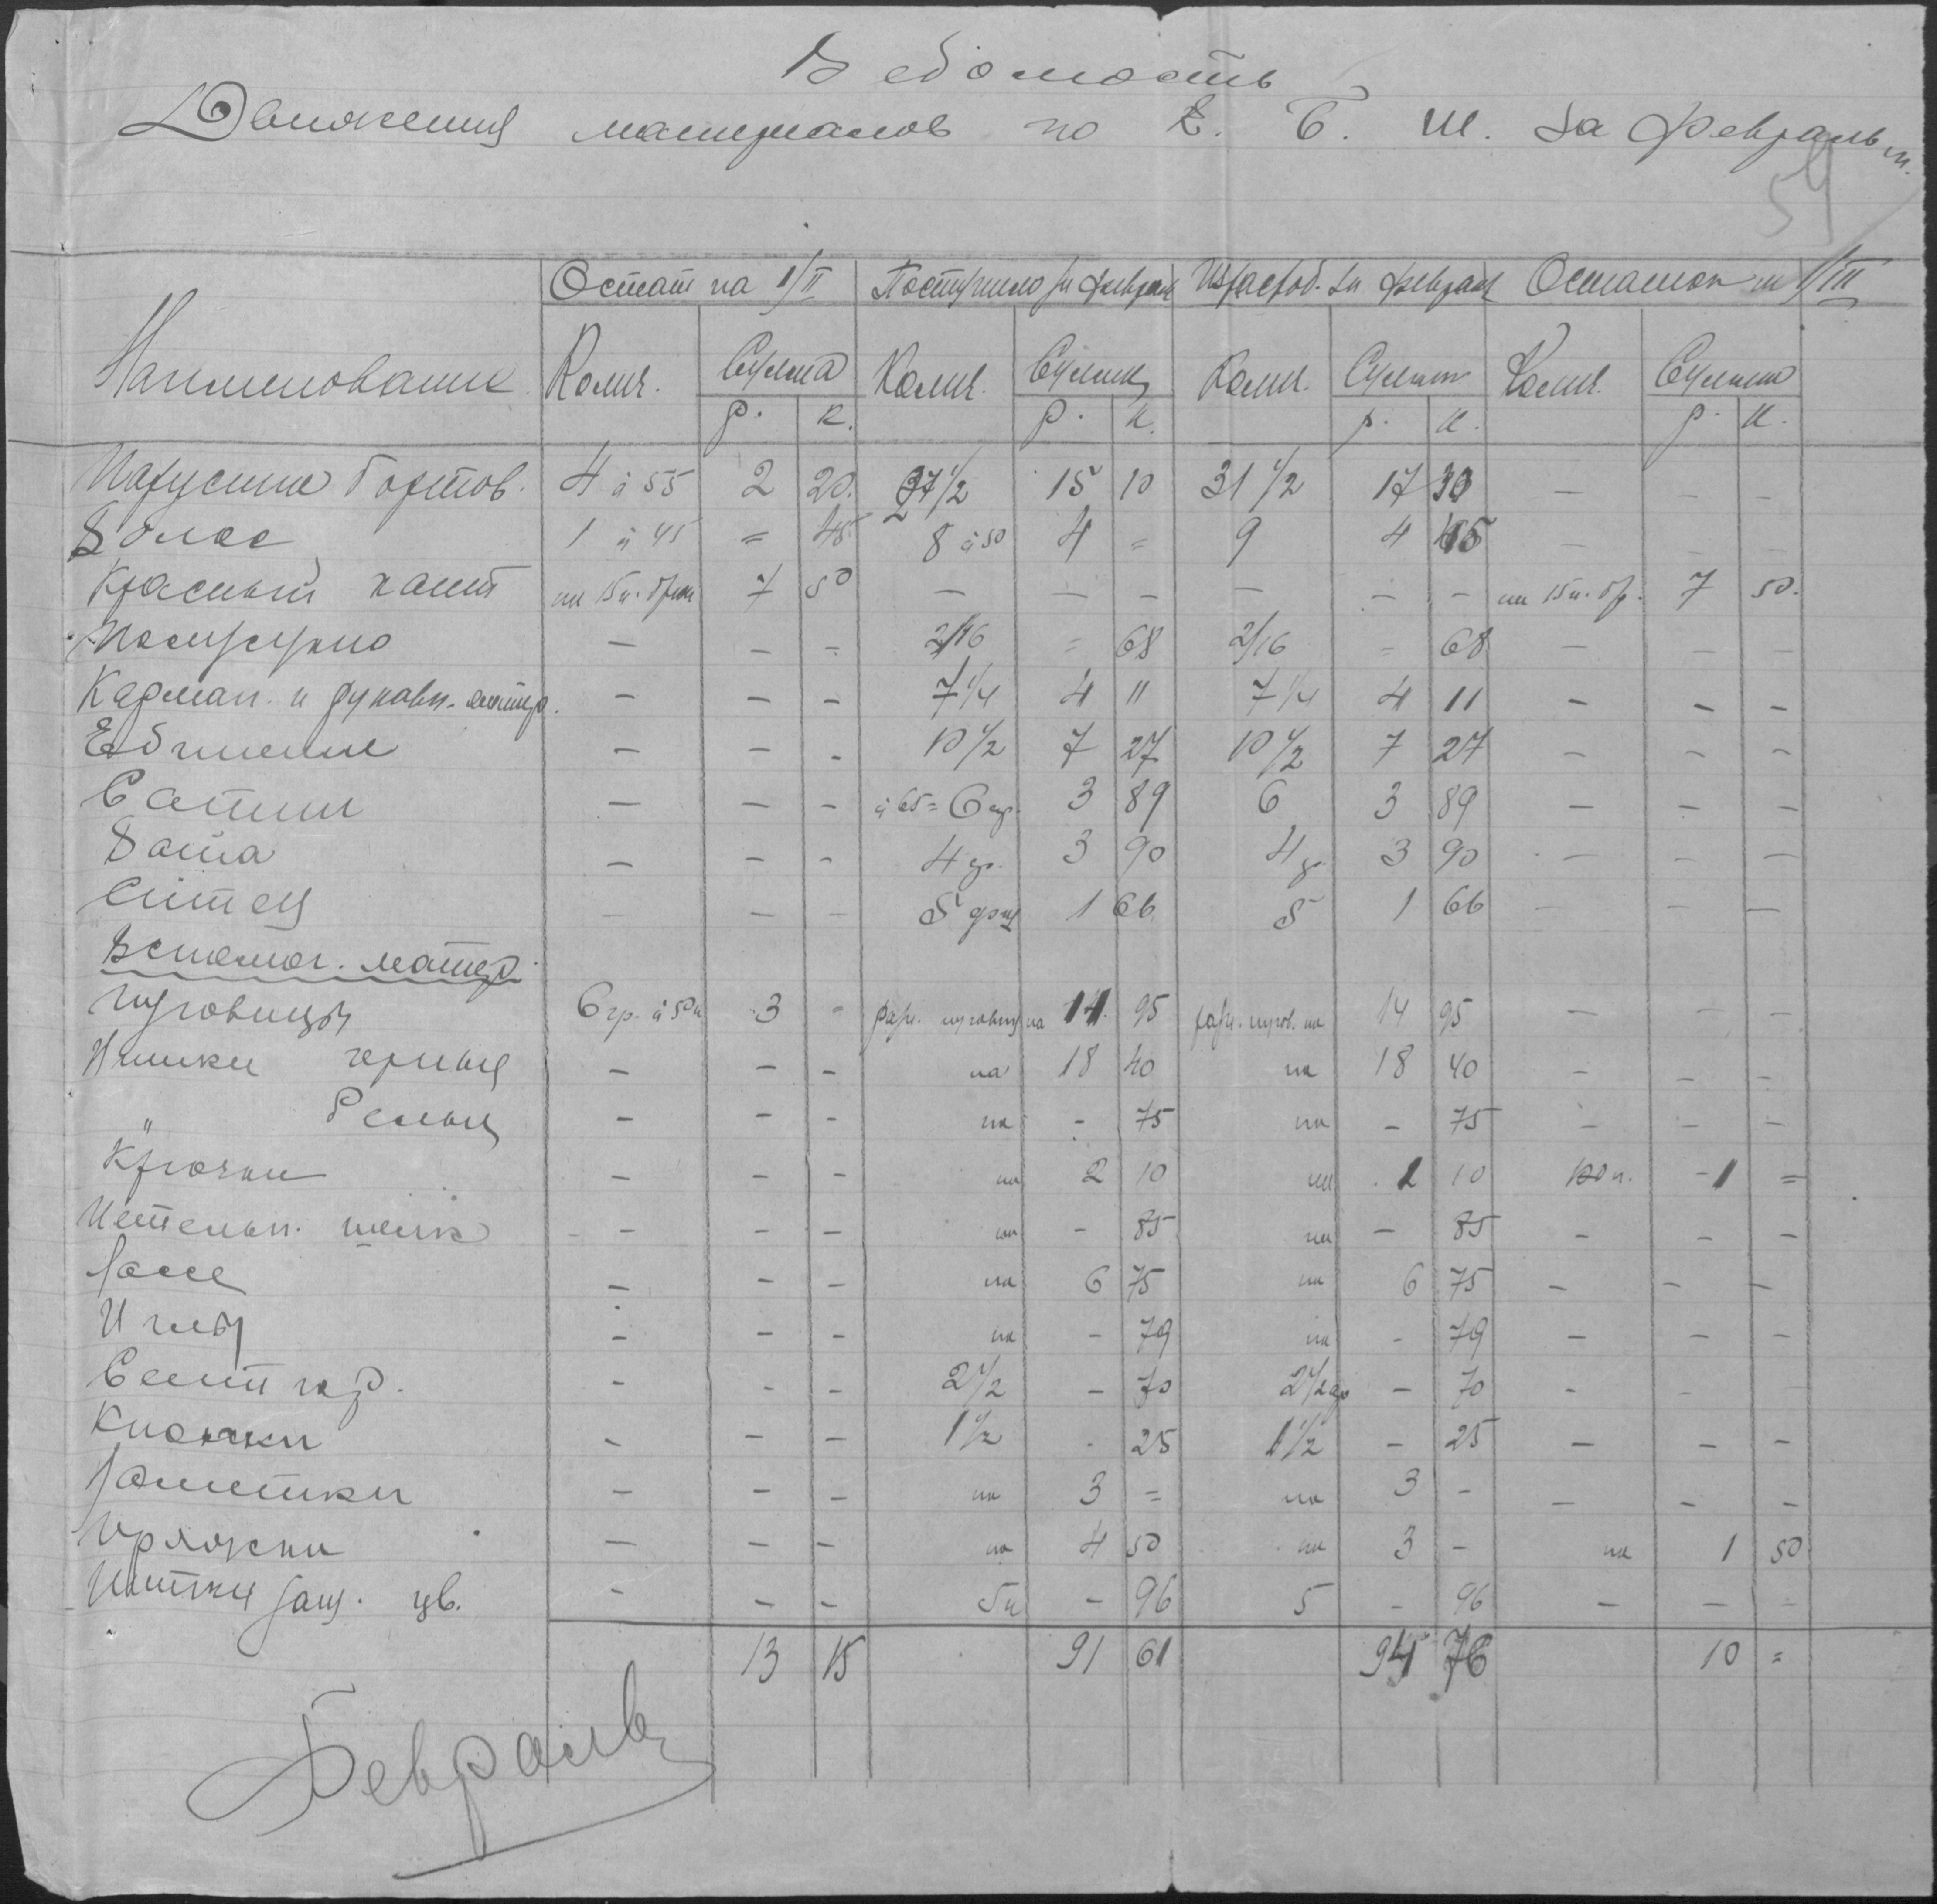 Ведомость
Движения материалов по Е. Б. Ш. за февраль м.
54
Наименование Остат на 1/II Поступило за феврал Израсход. за феврал Остаток на 1/III
Колич. Сумма Колич. Сумма Колич. Сумма Колич. Сумма
р. к. р. к. р. к. р. к.
Парусина бортов. 4 à 55 2 20. 27 1/2 15 10 31 1/2 17 30 — — —
Волос 1 à 45 = 45 8 à 50 4 = 9 4 45 — — —
Красный кант на 15 п. брюк 7 50 — — — — — — на 15 п. бр. 7 50.
Полусукно — — - 2/16 = 68 2/16 - 68 — — —
Карман. и рукавн. матер. — — — 7 1/4 4 11 7 1/4 4 11 — — —
— — - 10 1/2 7 27 10 1/2 7 27 — — —
Сатин — — — à 65 = 6 ар. 3 89 6 3 89 — — —
Вата — — — 4 ар. 3 90 4 ар. 3 90 — — —
Ситец — — — 5 1 66 5 1 66 — — —
Вспомог. матер.
Пуговицы 6 гр. à 50 к 3 - разн. пуговиц на 14. 95 разн. пугов. на 14 95 — — —
Нитки черные — — — на 18 40 на 18 40 — — —
" белые — — — на - 75 на - 75 — — —
Крючки — — — на 2 10 на 1 10 - 1 =
Петельн. шелк — — — на - 85 на — 85 — — —
— — — на 6 75 на 6 75 — — —
Иглы — — — на - 79 на - 79 — — —
- - — 2 1/2 - 70 2 1/2 ар — 70 - - -
Кнопки - — — 1 1/2 . 25 1 1/2 — 25 — — —
— — — на 3 = на 3 - — — —
Пряжки — — — на 4 50 на 3 - на 1 50
Нитки защ. цв. - — — 5 к - 96 5 - 96 — — -
13 15 91 61 94 76 10 =
Февраль